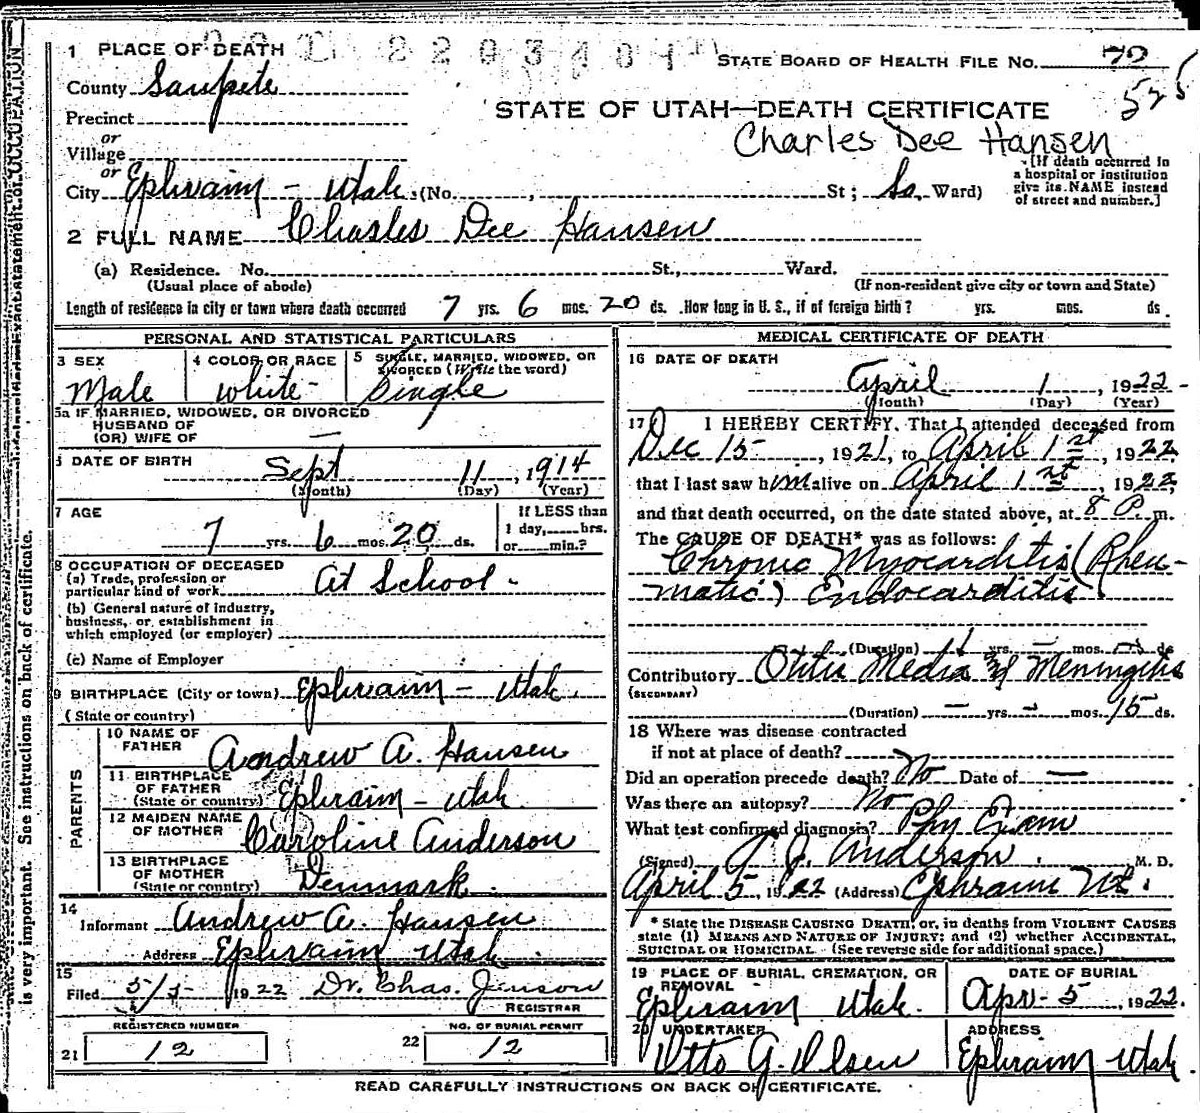 1 PLACE OF DEATH
STATE BOARD OF HEALTH FILE NO. 72
525
County Sanpete
STATE OF UTAH—DEATH CERTIFICATE
Precinct
Charles Dee Hansen
or
Village
or
City Ephraim - Utah. (No. , St; So. Ward)
[If death occurred in
a hospital or institution
give its NAME instead
of street and number.]
2 FULL NAME Charles Dee Hansen
(a) Residence. No. St., Ward.
(Usual place of abode) (If non-resident give city or town and State)
Length of residence in city or town where death occurred 7 yrs. 6 mos. 20 ds. How long in U. S., if of foreign birth? yrs. mos. ds.
PERSONAL AND STATISTICAL PARTICULARS
3 SEX
Male
4 COLOR OR RACE
White
5 SINGLE, MARRIED, WIDOWED, OR
DIVORCED (Write the word)
Single
5a IF MARRIED, WIDOWED, OR DIVORCED
HUSBAND OF
(OR) WIFE OF —
6 DATE OF BIRTH
Sept 11, 1914
(Month) (Day) (Year)
7 AGE
7 yrs. 6 mos. 20 ds.
If LESS than
1 day, hrs.
or min.?
8 OCCUPATION OF DECEASED
(a) Trade, profession or
particular kind of work At School -
(b) General nature of industry,
business, or establishment in
which employed (or employer)
(c) Name of Employer
9 BIRTHPLACE (City or town) Ephraim - Utah.
(State or country)
PARENTS
10 NAME OF
FATHER Andrew A. Hansen
11 BIRTHPLACE
OF FATHER
(State or country) Ephraim - Utah
12 MAIDEN NAME
OF MOTHER Caroline Anderson
13 BIRTHPLACE
OF MOTHER
(State or country) Denmark.
14
Informant Andrew A. Hansen
Address Ephraim Utah.
15
Filed 5/5- 1922 Dr. Chas. Jenson
REGISTRAR
REGISTERED NUMBER
21 12
NO. OF BURIAL PERMIT
22 12
MEDICAL CERTIFICATE OF DEATH
16 DATE OF DEATH
April 1, 1922
(Month) (Day) (Year)
17 I HEREBY CERTIFY, That I attended deceased from
Dec 15, 1921, to April 1st, 1922
that I last saw him alive on April 1st, 1922,
and that death occurred, on the date stated above, at 8 P. m.
The CAUSE OF DEATH* was as follows:
Chronic Myocarditis (Rheu-
matic) Endocarditis
(Duration) yrs. — mos. ds
Contributory Otitis Media & Meningitis
(SECONDARY)
(Duration) — yrs. - mos. 15 ds.
18 Where was disease contracted
if not at place of death?
Did an operation precede death? No Date of —
Was there an autopsy? No
What test confirmed diagnosis? Phy Exam
(Signed) Anderson, M. D.
April 5 1922 (Address) Ephraim Ut.
* State the DISEASE CAUSING DEATH, or, in deaths from VIOLENT CAUSES
state (1) MEANS AND NATURE OF INJURY; and (2) whether ACCIDENTAL,
SUICIDAL OR HOMICIDAL. (See reverse side for additional space.)
19 PLACE OF BURIAL, CREMATION, OR
REMOVAL
Ephraim Utah.
DATE OF BURIAL
Apr- 5, 1922.
20 UNDERTAKER
Otto G. Olsen
ADDRESS
Ephraim Utah
READ CAREFULLY INSTRUCTIONS ON BACK OF CERTIFICATE.
is very important. See instructions on back of certificate.
Exact statement of OCCUPATION